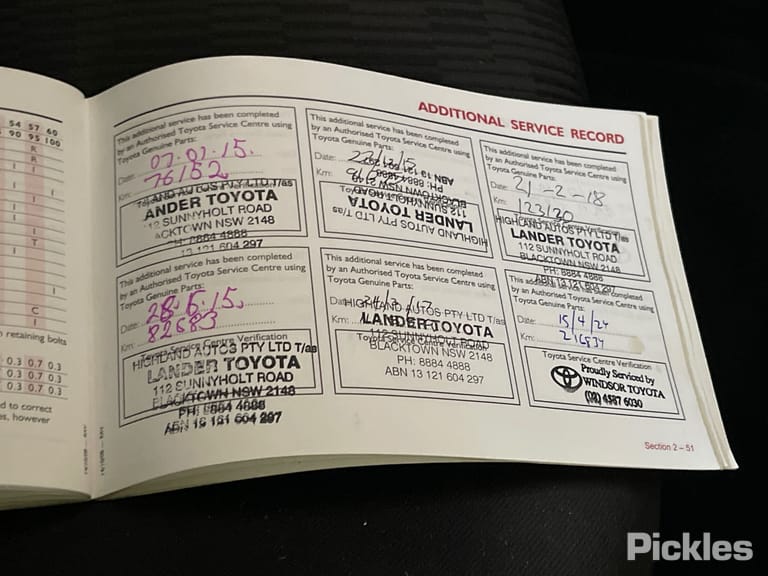 54 57 60
90 95 100
R
R
I
I
I
I
I
T
I
C
I
retaining bolts
0.3 0.7 0.3
0.3 0.7 0.3
0.3 0.7 0.3
ed to correct
es, however
ADDITIONAL SERVICE RECORD
This additional service has been completed
by an Authorised Toyota Service Centre using
Toyota Genuine Parts:
Date: 07.01.15.
Km: 76152
HIGHLAND AUTOS PTY LTD T/as
LANDER TOYOTA
112 SUNNYHOLT ROAD
BLACKTOWN NSW 2148
PH: 8884 4888
13 121 604 297
This additional service has been completed
by an Authorised Toyota Service Centre using
Toyota Genuine Parts:
Date:
Km:
ABN 13 121 604 297
PH: 8884 4888
BLACKTOWN NSW 2148
112 SUNNYHOLT ROAD
LANDER TOYOTA
HIGHLAND AUTOS PTY LTD T/as
This additional service has been completed
by an Authorised Toyota Service Centre using
Toyota Genuine Parts:
Date: 21-2-18
Km: 123130
HIGHLAND AUTOS PTY LTD T/as
LANDER TOYOTA
112 SUNNYHOLT ROAD
BLACKTOWN NSW 2148
PH: 8884 4888
ABN 13 121 604 297
This additional service has been completed
by an Authorised Toyota Service Centre using
Toyota Genuine Parts:
Date: 28.5.15.
Km: 82683
Toyota Service Centre Verification
HIGHLAND AUTOS PTY LTD T/as
LANDER TOYOTA
112 SUNNYHOLT ROAD
BLACKTOWN NSW 2148
PH: 8884 4888
ABN 13 121 604 297
This additional service has been completed
by an Authorised Toyota Service Centre using
Toyota Genuine Parts:
Date:
Km:
HIGHLAND AUTOS PTY LTD T/as
LANDER TOYOTA
112 SUNNYHOLT ROAD
Toyota Service Centre Verification
BLACKTOWN NSW 2148
PH: 8884 4888
ABN 13 121 604 297
This additional service has been completed
by an Authorised Toyota Service Centre using
Toyota Genuine Parts:
Date: 15/4/24
Km: 216834
Toyota Service Centre Verification
Proudly Serviced by
WINDSOR TOYOTA
(02) 4587 6030
Section 2 – 51
Pickles